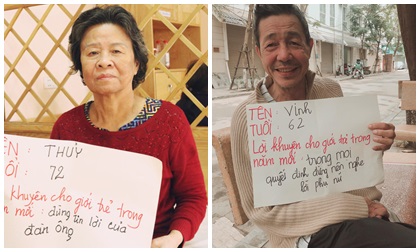 TÊN : THUỶ
TUỔI : 72
Lời khuyên cho giới trẻ trong
năm mới : đừng tin lời của
đàn ông
TÊN : Vinh
TUỔI : 62
Lời khuyên cho giới trẻ trong
năm mới : trong mọi
quyết định đừng nên nghe
lời phụ nữ